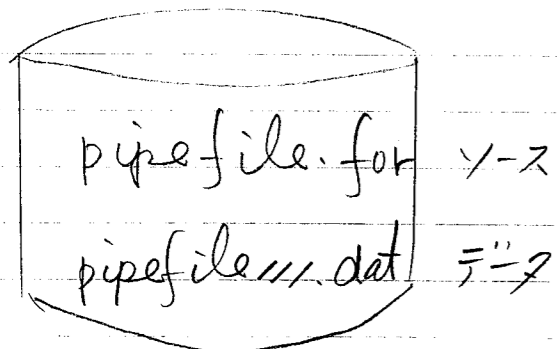 pipefile.for ソース
pipefile///.dat データ